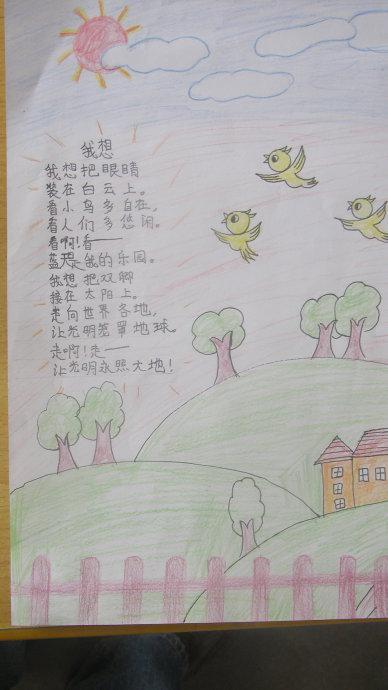 我想
我想把眼睛
装在白云上。
看小鸟多自在，
看人们多悠闲。
看啊！看——
蓝天是我的乐园。
我想把双脚
接在太阳上。
走向世界各地，
让光明笼罩地球。
走啊！走——
让光明永照大地！